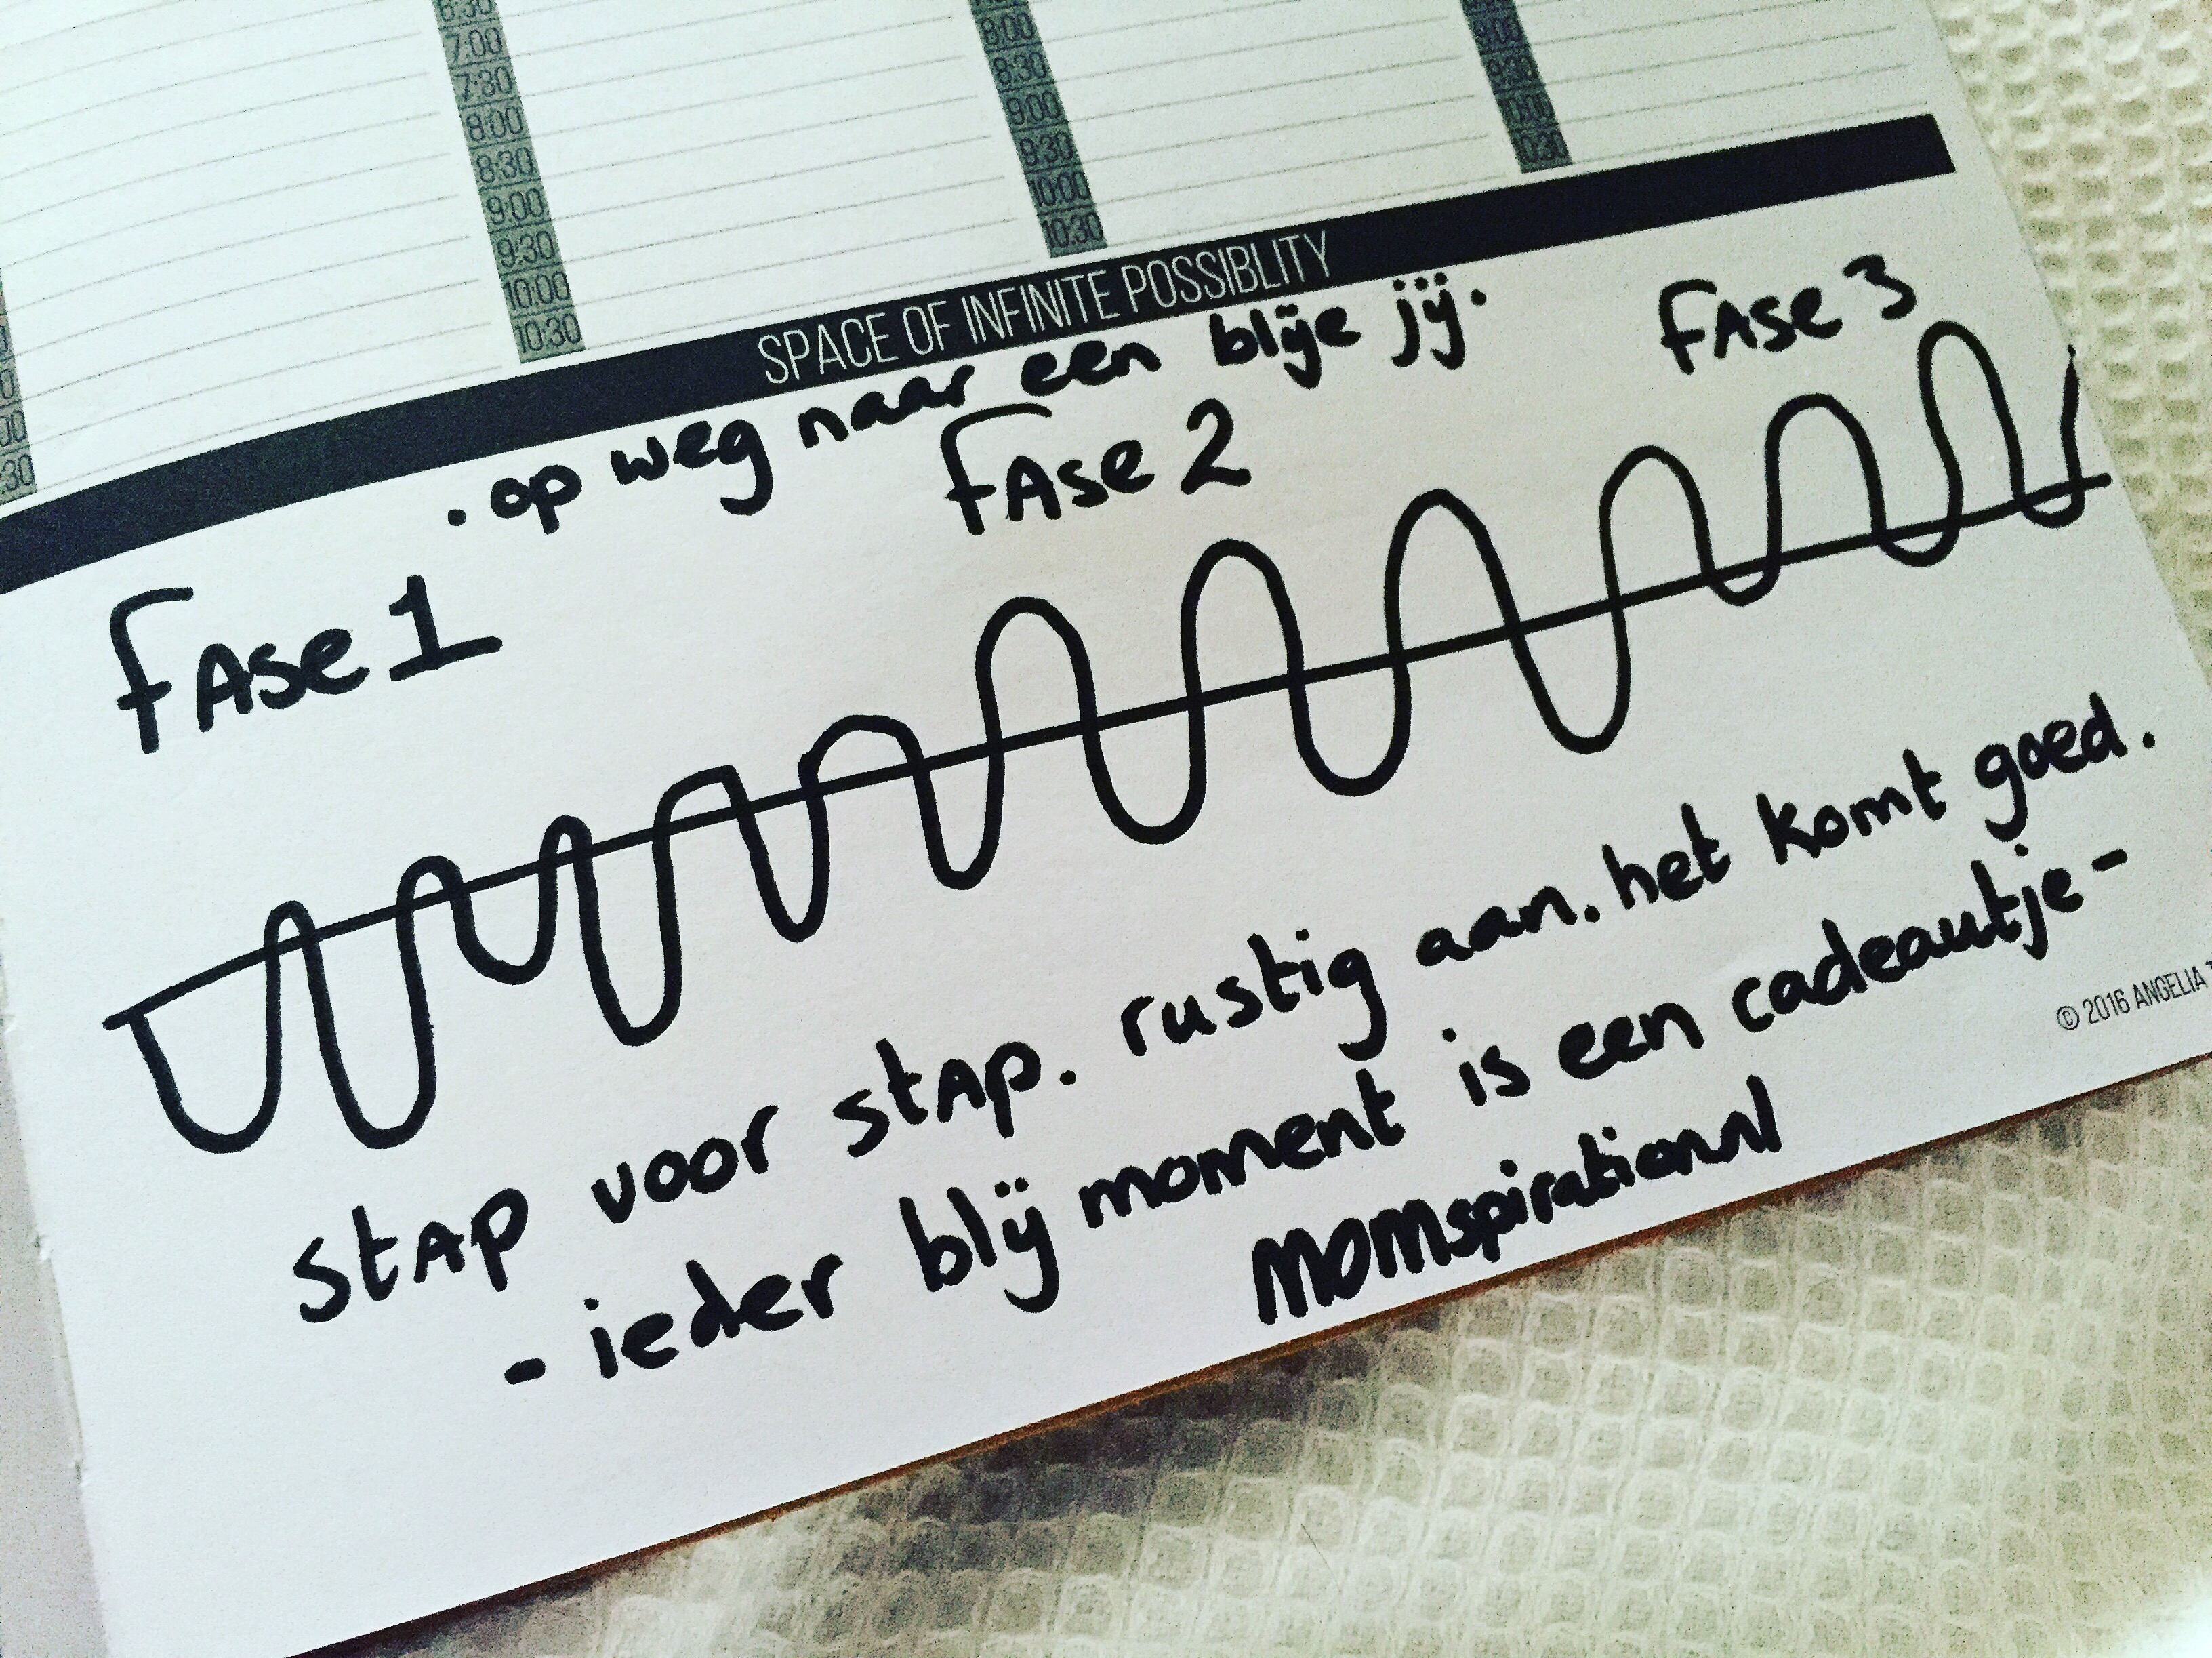 6:30
7:00
7:30
8:00
8:30
9:00
9:30
10:00
10:30
8:00
8:30
9:00
9:30
10:00
10:30
9:00
9:30
10:00
10:30
:30
SPACE OF INFINITE POSSIBLITY
. op weg naar een blije jij.
FAse 1
FAse 2
FAse 3
StAp voor stAp. rustig aan. het komt goed.
- ieder blij moment is een cadeautje -
MOMspiration.nl
© 2016 ANGELIA